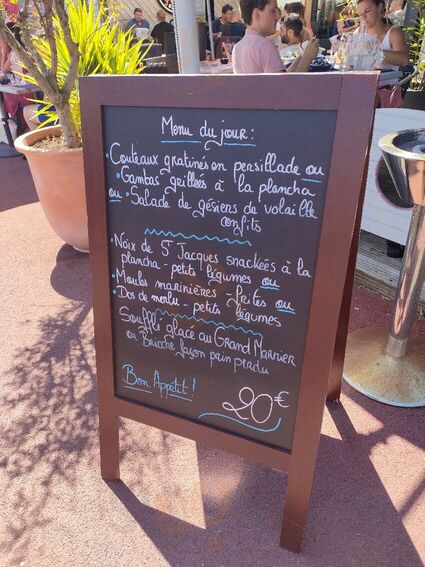 Menu du jour :
• Couteaux gratinés en persillade ou
• Gambas grillées à la plancha
ou • Salade de gésiers de volaille
confits
• Noix de St Jacques snackées à la
plancha - petits légumes ou
• Moules marinières - frites ou
• Dos de merlu - petits légumes
Soufflé glacé au Grand Marnier
ou Brioche façon pain perdu
Bon Appétit !
20€